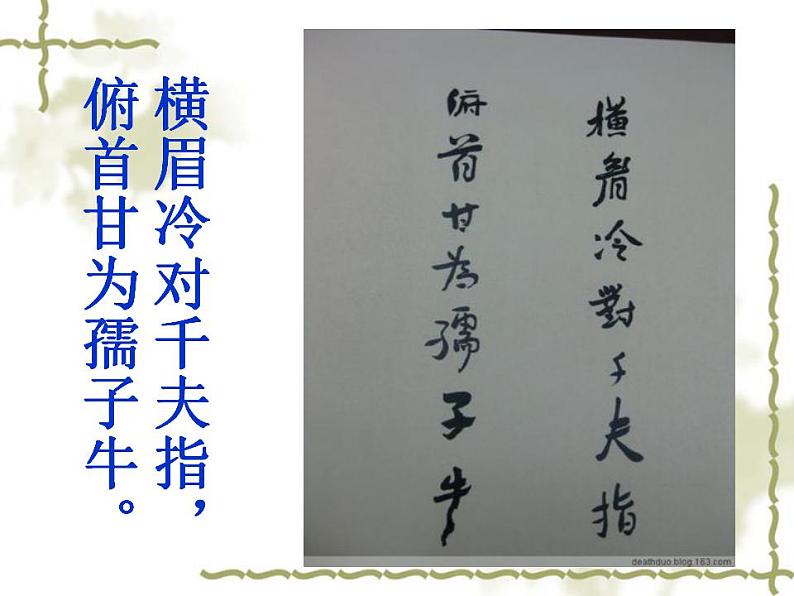 横眉冷对千夫指，
俯首甘为孺子牛。
橫眉冷對千夫指
俯首甘為孺子牛
deathduo.blog.163.com